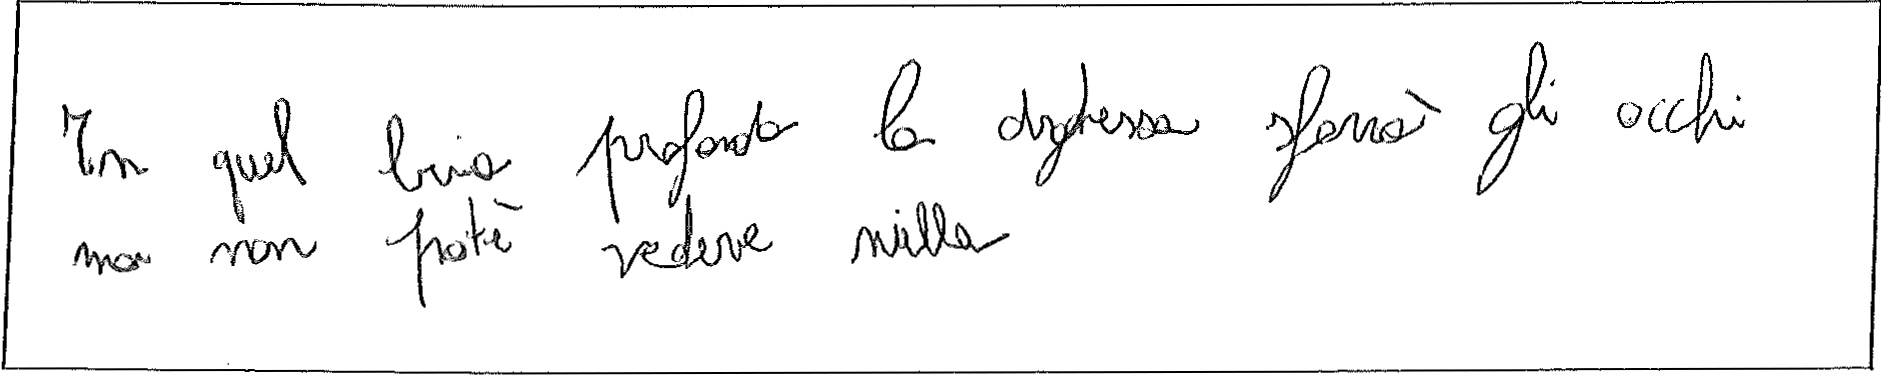 In quel buio profondo la sforzò gli occhi
ma non potè vedere nulla